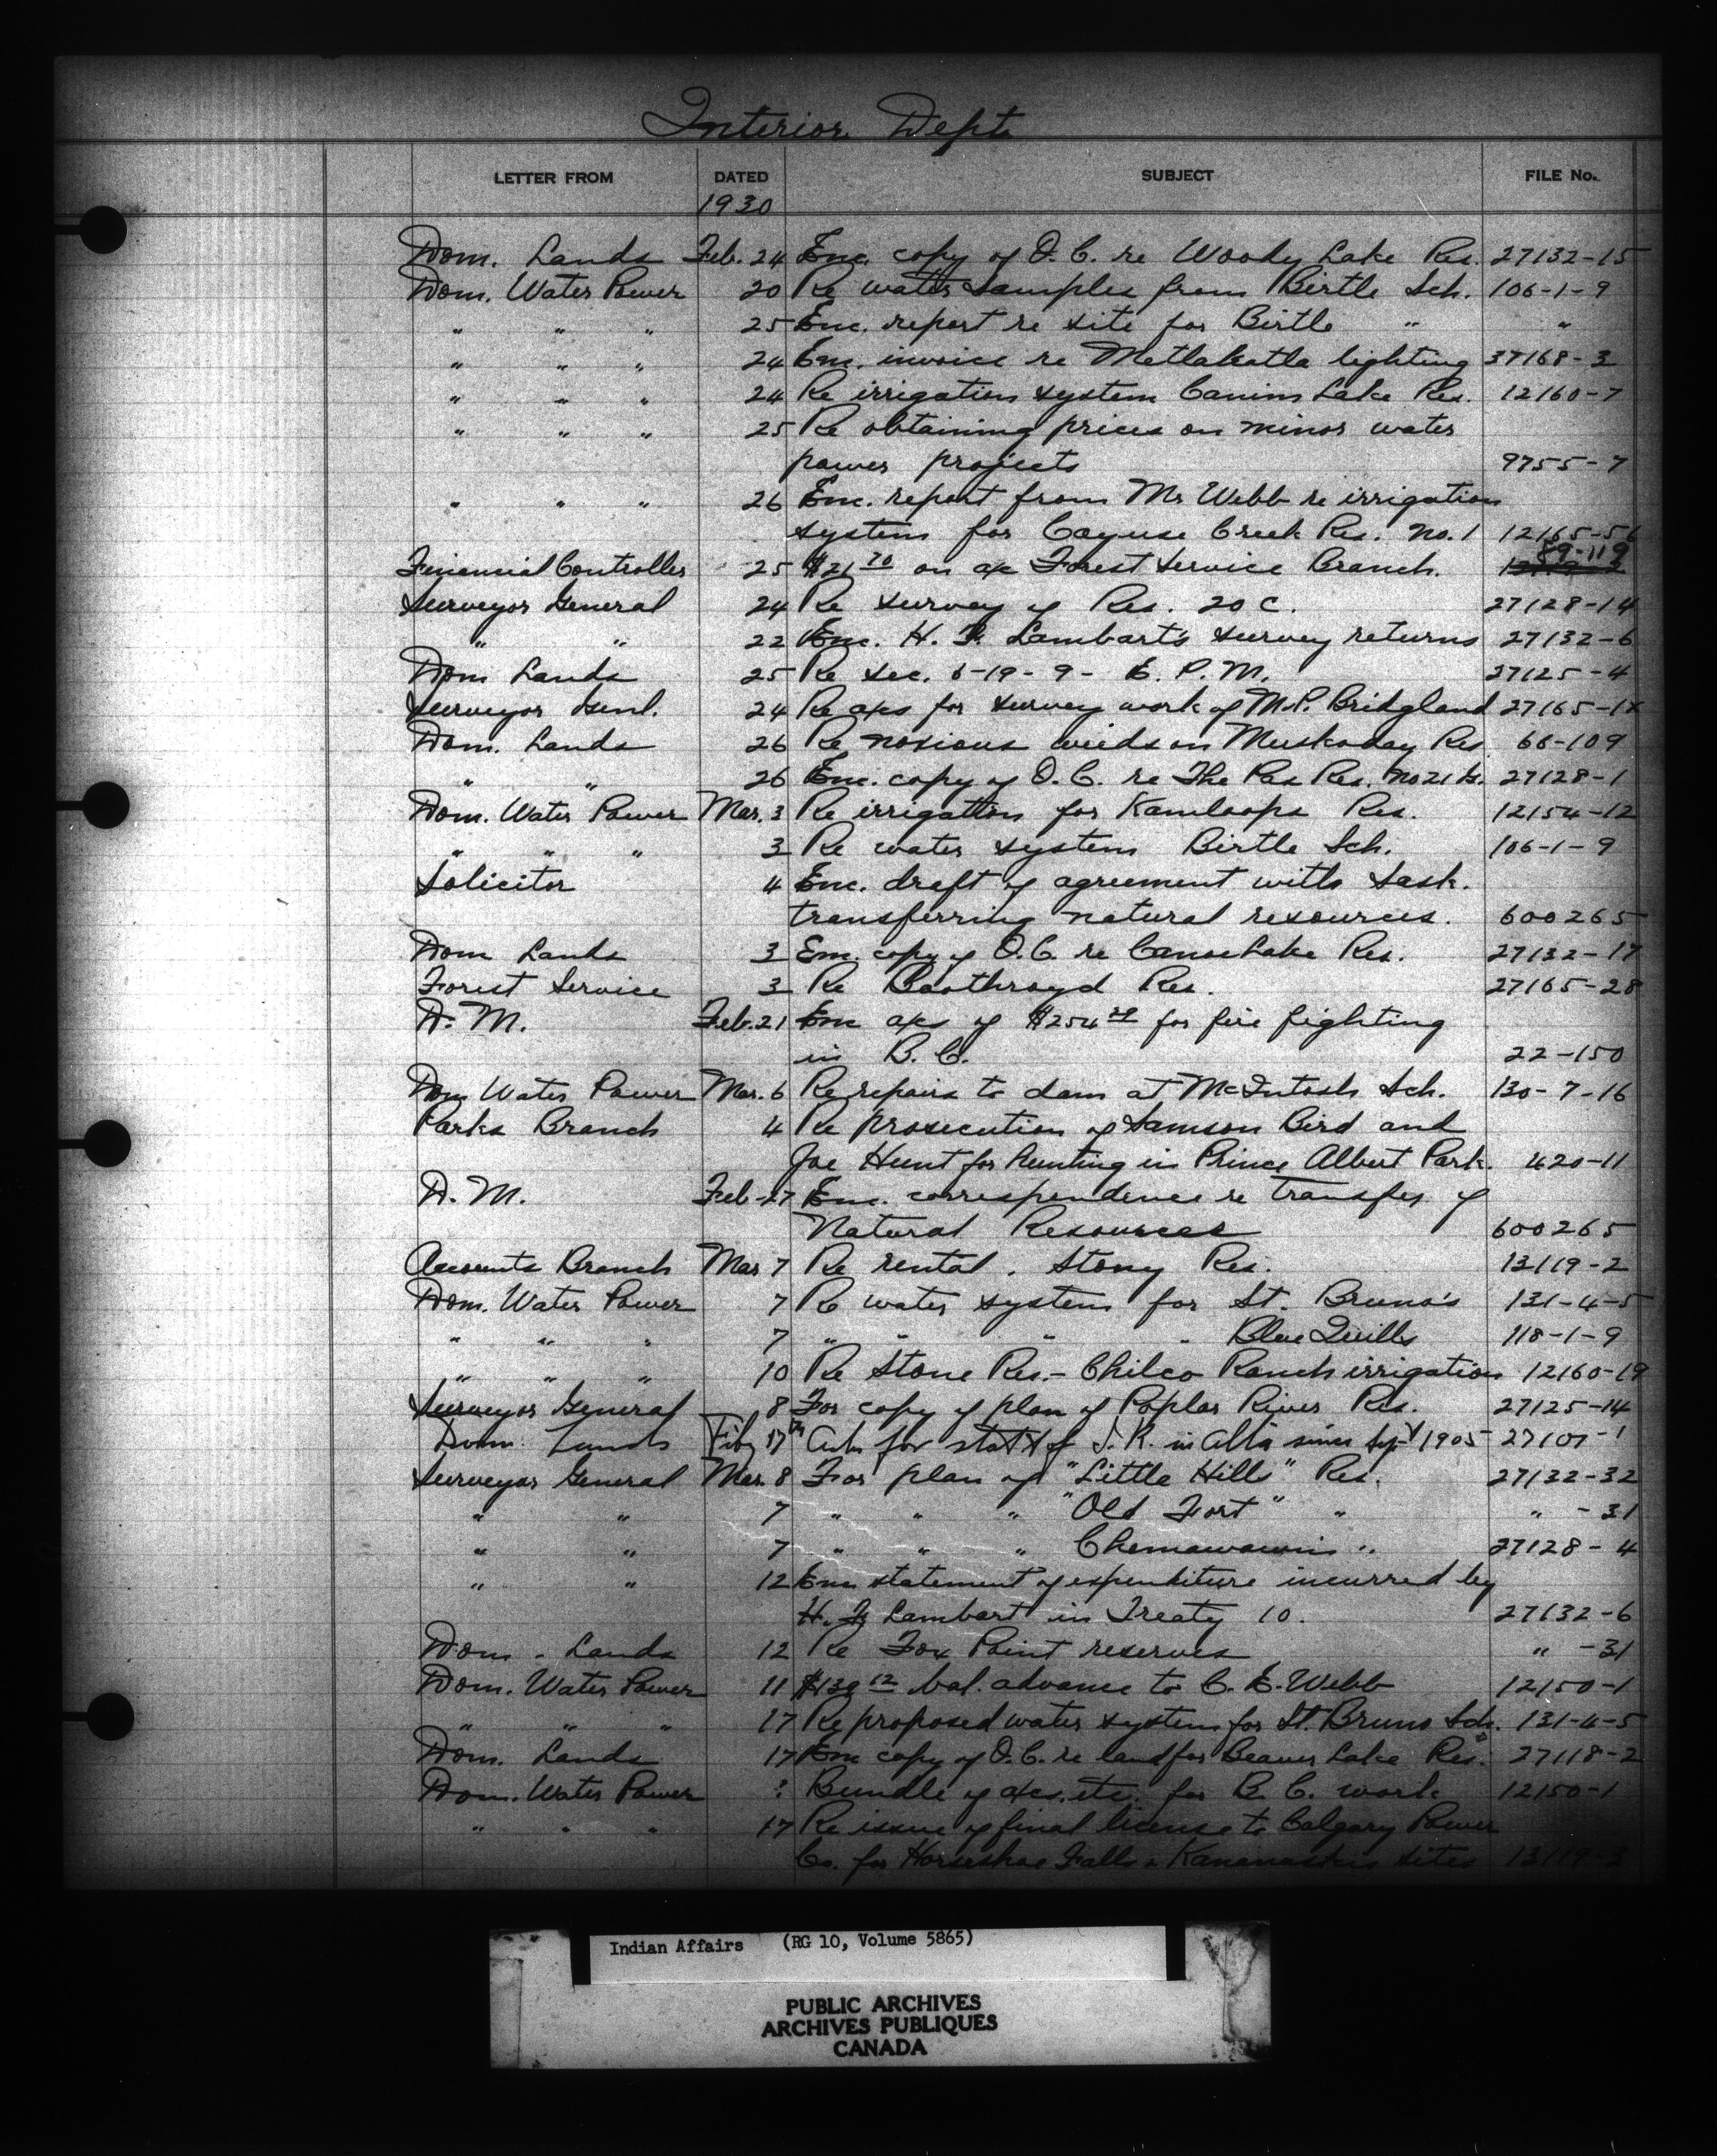 Interior Dept.
LETTER FROM DATED SUBJECT FILE No.
1930
Dom. Lands Feb. 24 Enc. copy of O.C. re Woody Lake Res. 27132-15
Dom. Water Power 20 Re water samples from Birtle Sch. 106-1-9
" " " 25 Enc. report re site for Birtle " "
" " " 24 Enc. invoice re Metlakatla lighting 37168-3
" " " 24 Re irrigation system Canim Lake Res. 12160-7
" " " 25 Re obtaining prices on minor water
power projects 9755-7
" " " 26 Enc. report from Mr Webb re irrigation
system for Cayuse Creek Res. No. 1 12165-56
Financial Controller 25 $21 70 on a/c Forest Service Branch. 89-119
Surveyor General 24 Re survey of Res. 20 C. 27128-14
" " 22 Enc. H. F. Lambart's survey returns 27132-6
Dom Lands 25 Re Sec. 6-19-9- E. P. M. 27125-4
Surveyor Genl. 24 Re a/cs for survey work of M.P. Bridgland 27165-1
Dom. Lands 26 Re noxious weeds on Muskoday Res 68-109
" " 26 Enc. copy of O.C. re The Pas Res. No 21 27128-1
Dom. Water Power Mar. 3 Re irrigation for Kamloops Res. 12154-12
" " " 3 Re water system Birtle Sch. 106-1-9
Solicitor 4 Enc. draft of agreement with Sask.
transferring natural resources. 600265
Dom Lands 3 Enc. copy of O.C. re Canoe Lake Res. 27132-17
Forest Service 3 Re Boothroyd Res. 27165-28
D. M. Feb. 21 Enc a/cs of $254 for fire fighting
in B. C. 22-150
Dom Water Power Mar. 6 Re repairs to dam at McIntosh Sch. 130-7-16
Parks Branch 4 Re prosecution of Samson Bird and
Joe Hunt for hunting in Prince Albert Park. 420-11
D. M. Feb-27 Enc. correspondence re transfer of
Natural Resources 600265
Accounts Branch Mar 7 Re rental. Stony Res. 13119-2
Dom. Water Power 7 Re water system for St. Bruno's 131-4-5
" " " 7 " " " " Blue Quills 118-1-9
" " " 10 Re Stone Res.- Chilco Ranch irrigation 12160-19
Surveyor General 8 For copy of plan of Poplar River Res. 27125-14
Dom. Lands Feby 17th for of I.R. in Alta since 1905 27107-1
Surveyor General Mar. 8 For plan of "Little Hills" Res. 27132-32
" " 7 " " " "Old Fort" " " -31
" " 7 " " " Chemawawin " 27128-4
" " 12 Enc statement of expenditure incurred by
H. F. Lambart in Treaty 10. 27132-6
Dom. Lands 12 Re Fox Point reserves " -31
Dom. Water Power 11 $139 12 bal. advance to C. E. Webb 12150-1
" " " 17 Re proposed water system for St. Bruno Sch. 131-4-5
Dom. Lands 17 Enc copy of O.C. re land for Beaver Lake Res. 27118-2
Dom. Water Power ? Bundle of a/cs. etc. for B. C. work 12150-1
" " " 17 Re issue of final license to Calgary Power
Co. for Horseshoe Falls & Kananaskis sites 13119-3
Indian Affairs (RG 10, Volume 5865)
PUBLIC ARCHIVES
ARCHIVES PUBLIQUES
CANADA